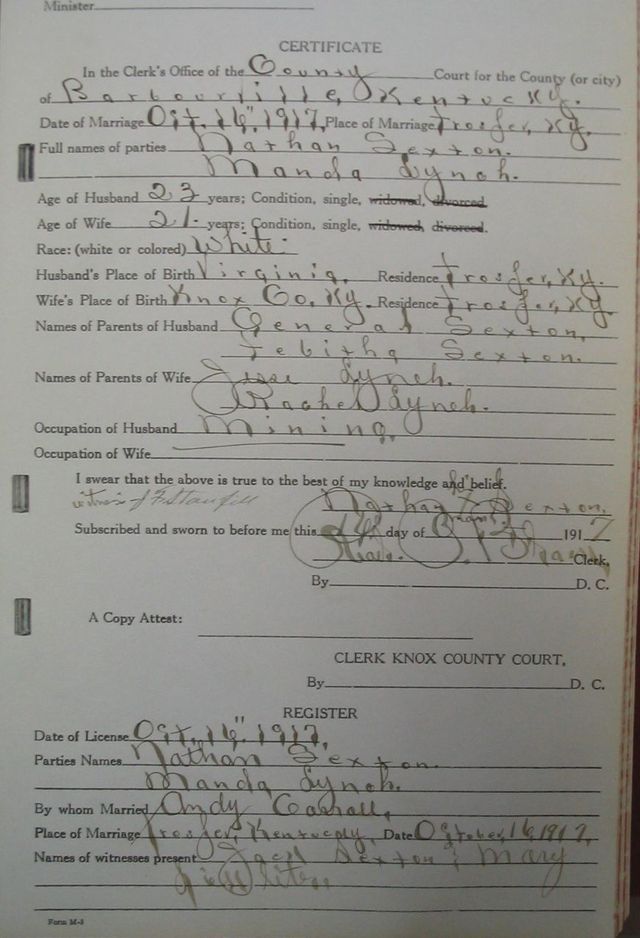 Minister
CERTIFICATE
In the Clerk's Office of the County Court for the County (or city)
of Barbourville, Kentucky.
Date of Marriage Oct. 16" 1917, Place of Marriage Trosfer, Ky.
Full names of parties Nathan Sexton.
Manda Lynch.
Age of Husband 23 years; Condition, single, widowed, divorced
Age of Wife 21. years; Condition, single, widowed, divorced.
Race: (white or colored) White.
Husband's Place of Birth Virginia, Residence Trosfer, Ky.
Wife's Place of Birth Knox Co, Ky. Residence Trosfer, Ky.
Names of Parents of Husband General Sexton,
Tebitha Sexton.
Names of Parents of Wife Jesse Lynch.
Rachel Lynch.
Occupation of Husband Mining,
Occupation of Wife
I swear that the above is true to the best of my knowledge and belief.
witness J F Stanfill Nathan Sexton,
Subscribed and sworn to before me this day of 1917
Clerk,
By D. C.
A Copy Attest:
CLERK KNOX COUNTY COURT,
By D. C.
REGISTER
Date of License Oct. 16" 1917,
Parties Names Nathan Sexton.
Manda Lynch.
By whom Married Andy Carroll,
Place of Marriage Trosfer, Kentucky, Date October, 16, 1917,
Names of witnesses present Jack Sexton & Mary
Form M-3